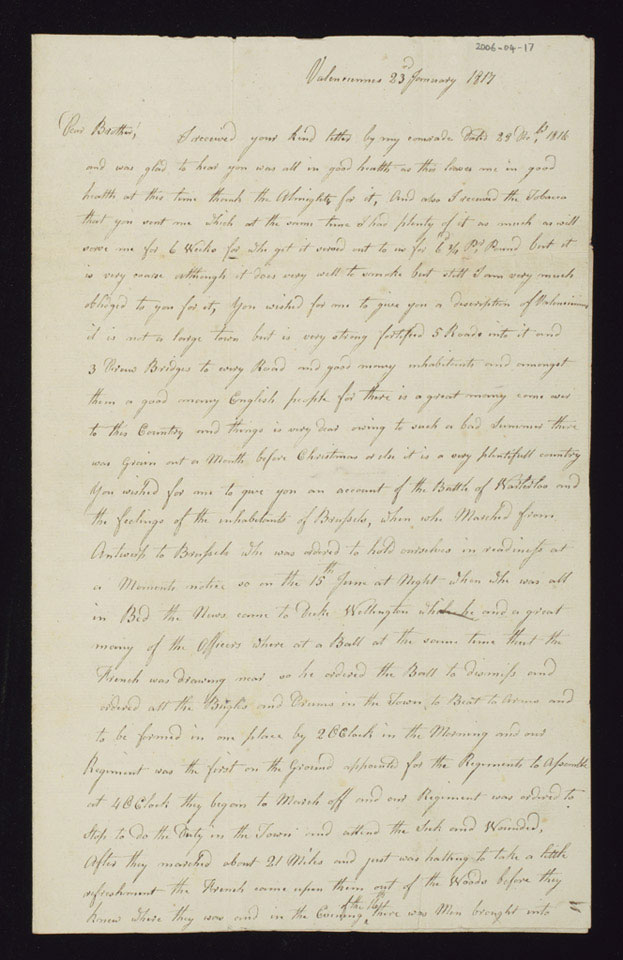 2006-04-17
Valenciennes 23rd January 1817
Dear Brother, I received your kind letter by my comrade Dated 29 1816
and was glad to hear you was all in good health as this leaves me in good
health at this time thank the Almighty for it, And also I received the Tobacco
that you sent me which at the same time I had plenty of it as much as will
serve me for 6 Weeks for whe get it served out to us for 6 3/4 Pr Pound but it
is very coarse although it does very well to smoke but still I am very much
obliged to you for it, You wished for me to give you a description of Valenciennes
it is not a large town but is very strong fortified 5 Roads into it and
3 Draw Bridges to every Road and good money inhabitants and amongst
them a good many English people for there is a great many come over
to this Country and things is very dear owing to such a bad Summer there
was Grain out a Month before Christmas or else it is a very plentifull country
You wished for me to give you an account of the Battle of Watterloo and
the feelings of the inhabitants of Brussels, when whe Marched from
Antwerp to Brussels whe was ordered to hold ourselves in readiness at
a Moments notice so on the 15th June at Night when whe was all
in Bed the News came to Duke Wellington while he and a great
many of the Officers where at a Ball at the same time that the
French was drawing near so he ordered the Ball to dismiss and
ordered all the Bugles and Drums in the Town to Beat to Arms and
to be formed in one place by 2 OClock in the Morning and our
Regiment was the first on the Ground appointed for the Regiments to Assemble
at 4 OClock they began to March off and our Regiment was ordered to
stop to do the Duty in the Town and attend the Sick and Wounded,
After they marched about 21 Miles and just was halting to take a little
refreshment the French came upon them out of the Woods before they
knew where they was and in the Evening of the 16th there was Men brought into =